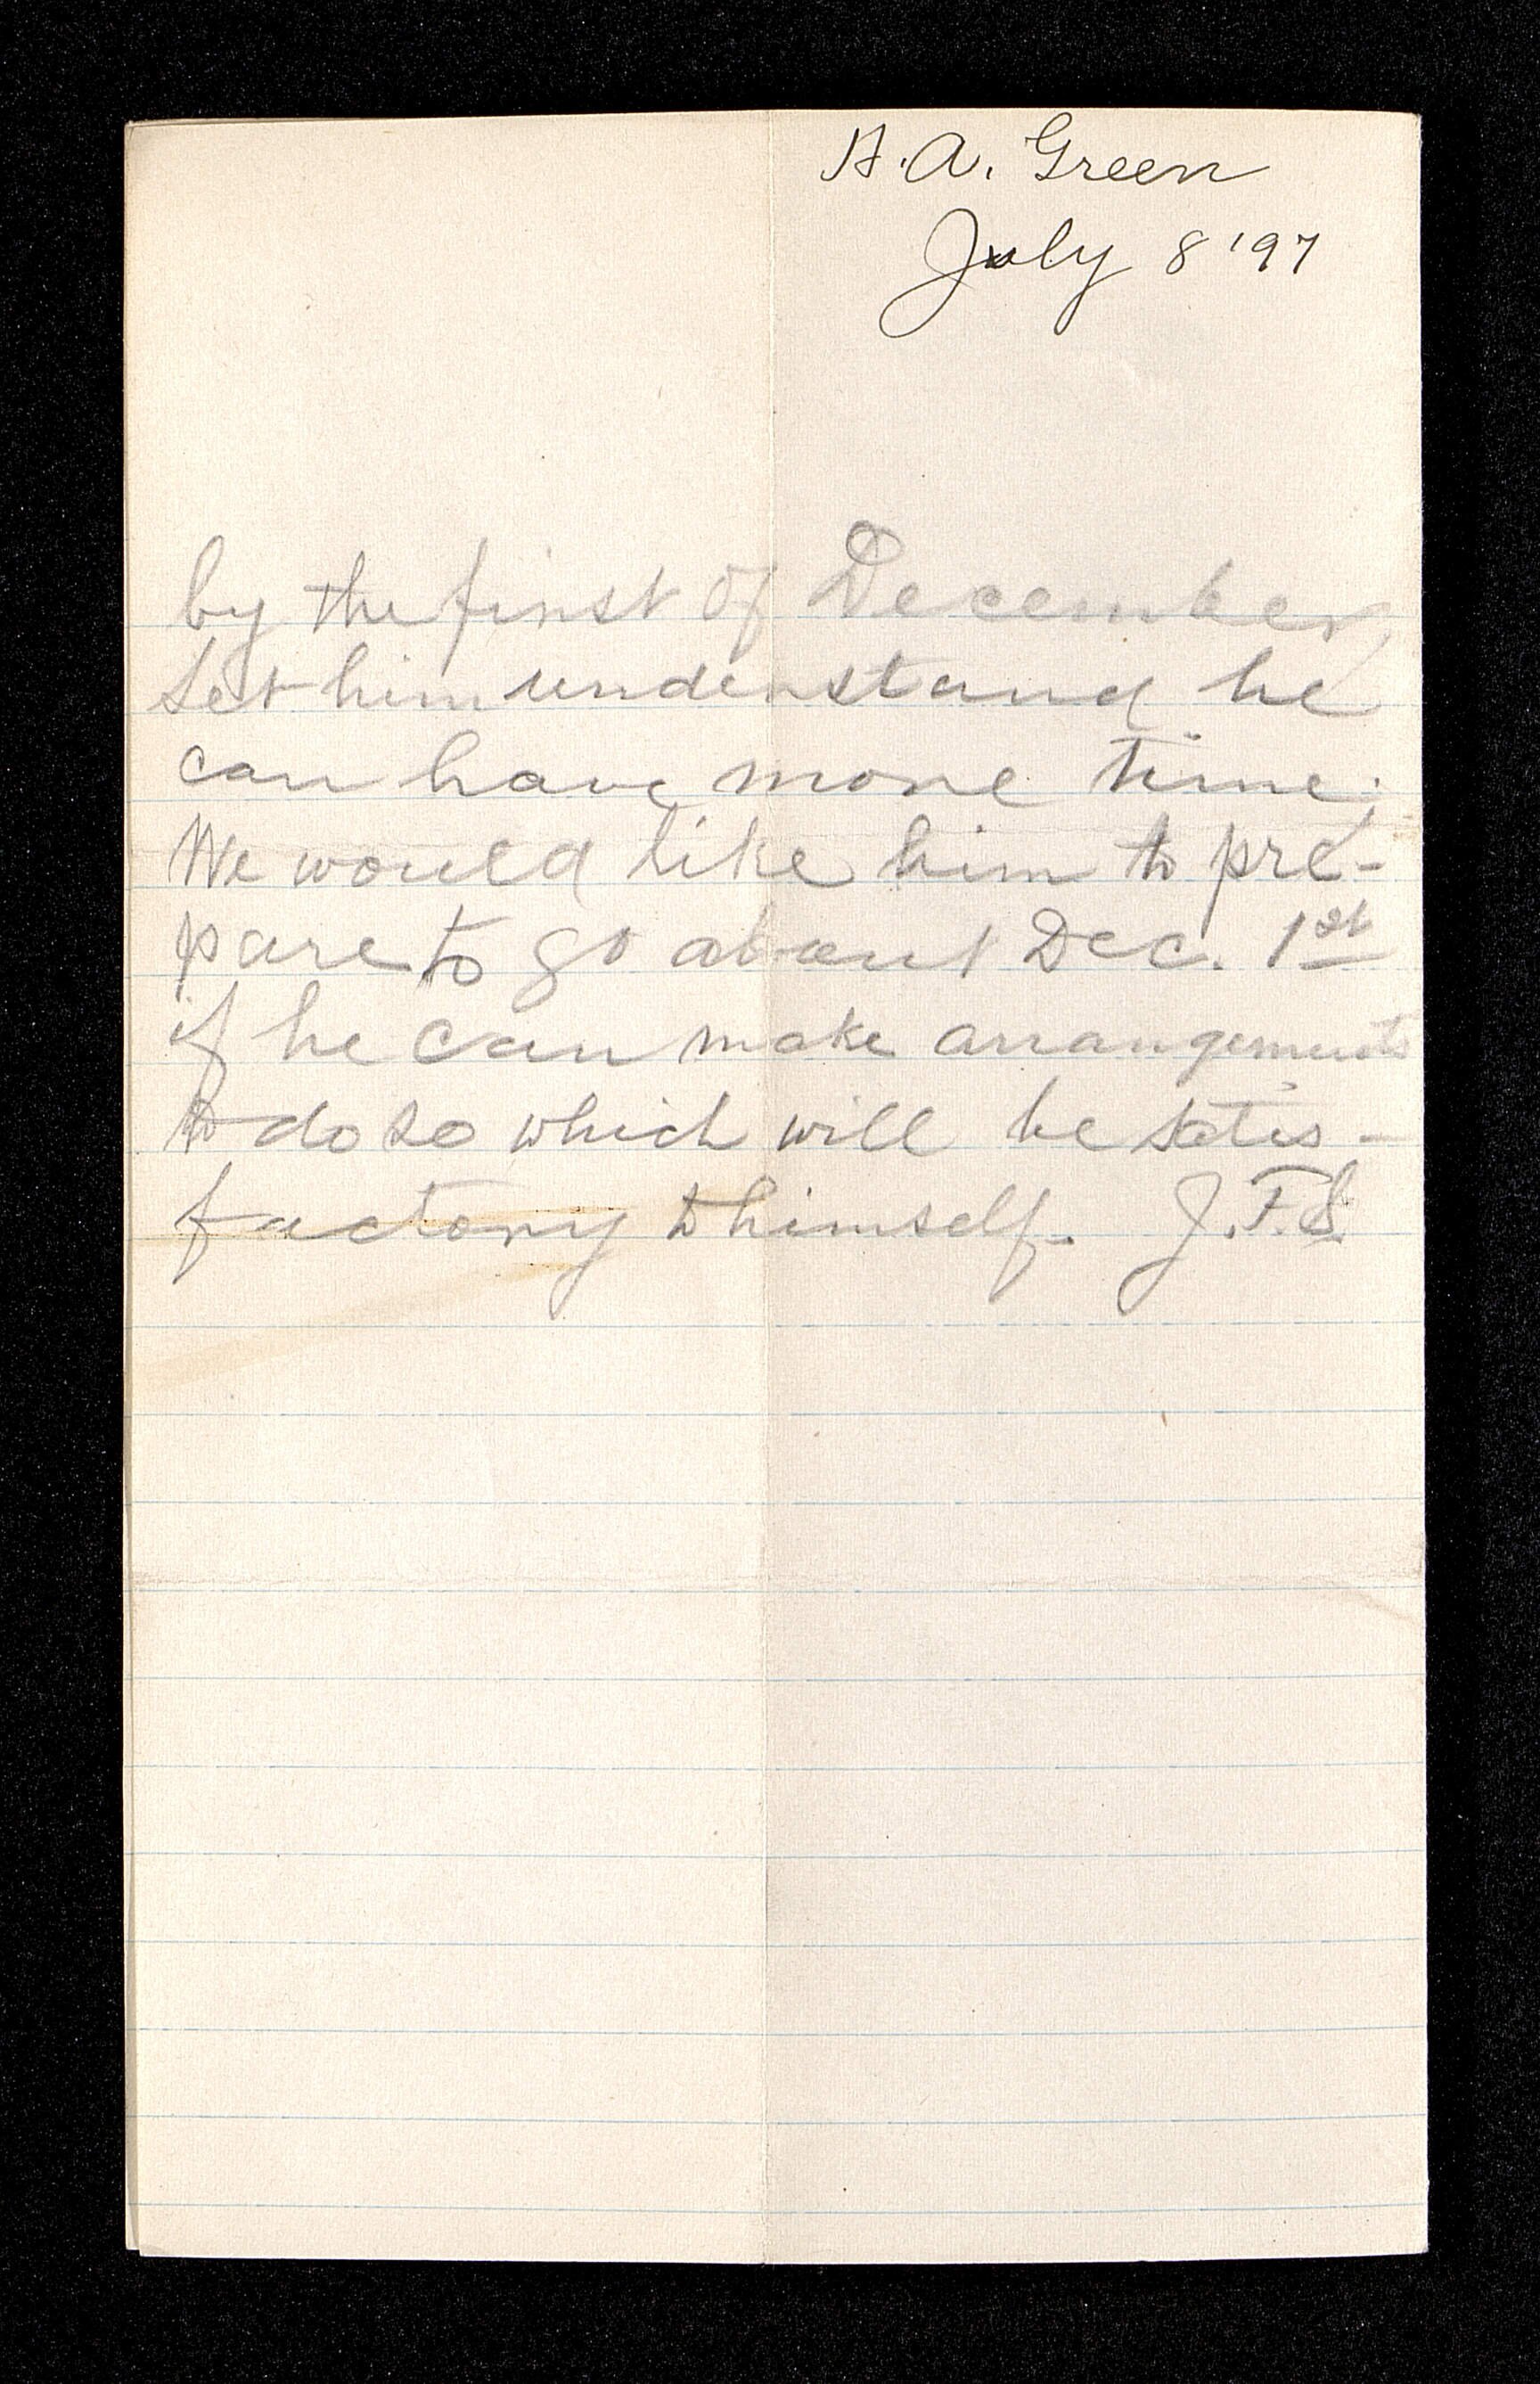 A. A. Green
July 8 '97
by the first of December,
Let him understand he
can have more time.
We would like him to pre-
pare to go about Dec. 1st
if he can make arrangements
to do so which will be satis-
factory to himself. J.F.S.